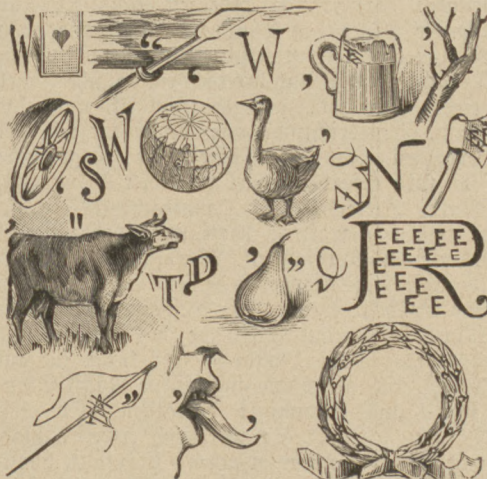 W “ , W , ’
, S W ’ N
, " T P , ” R ,
E E E E E
E E E E E
E E E
E E
A ” , ,